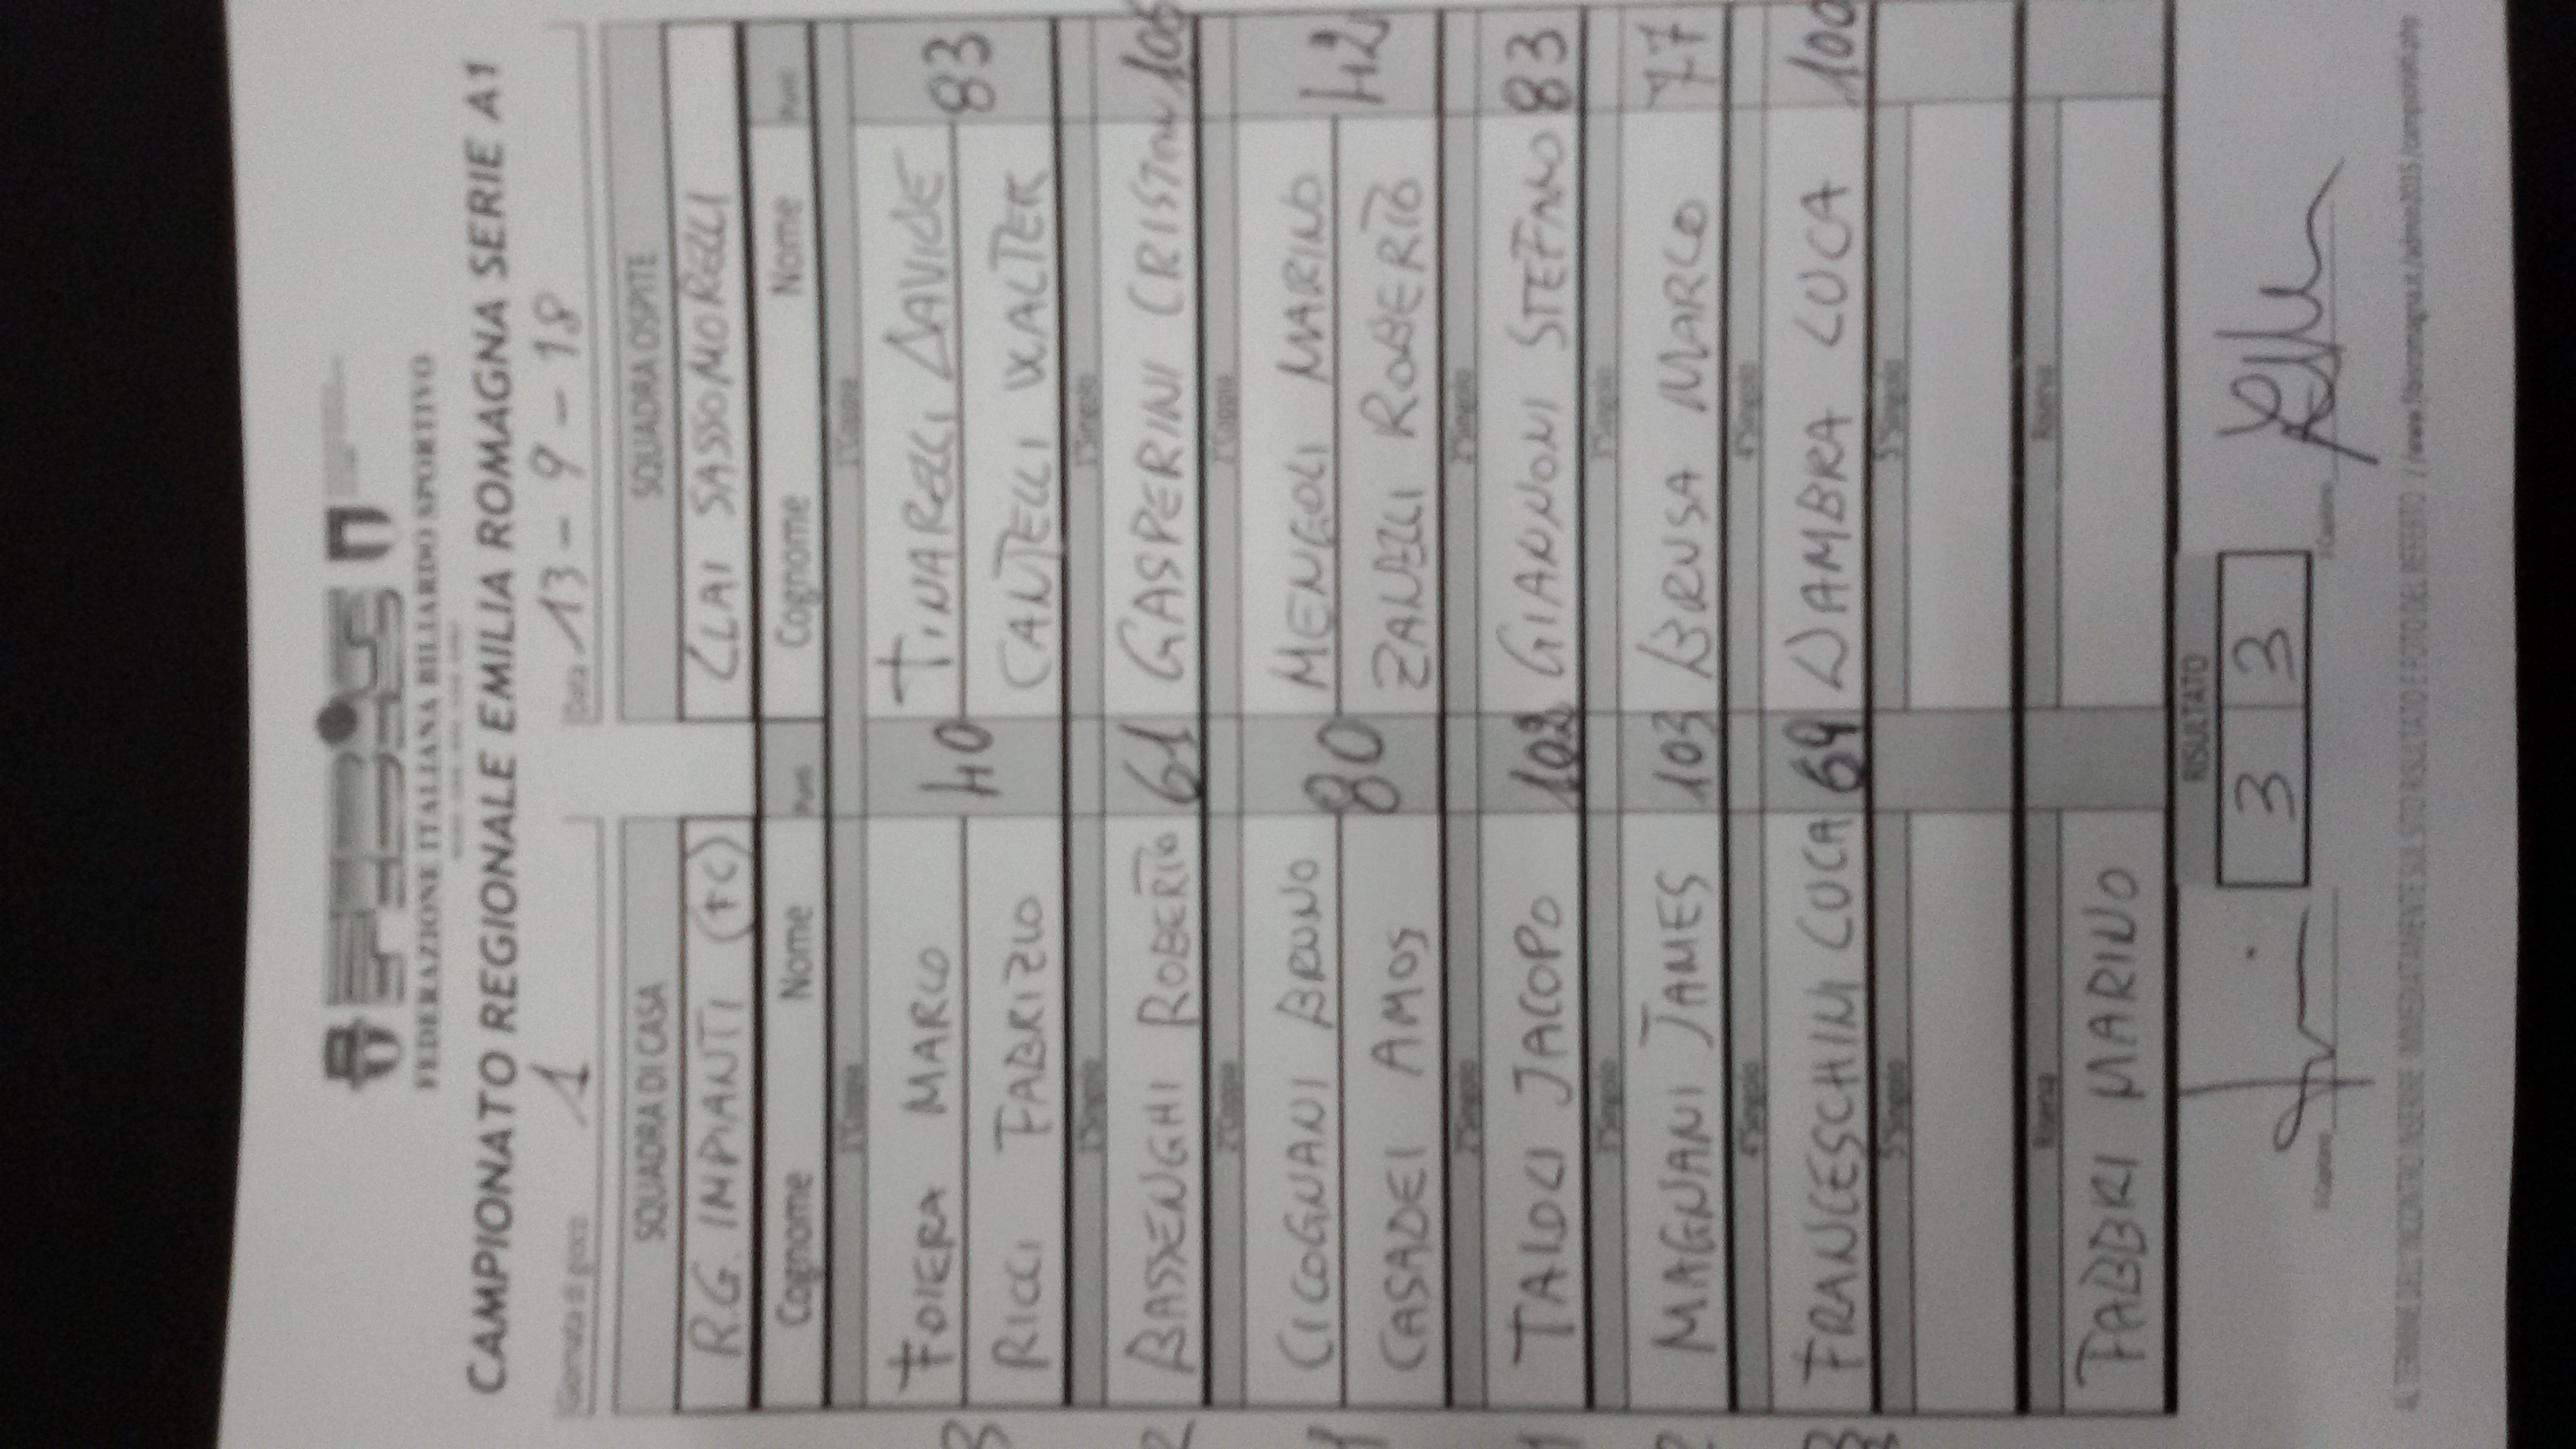 FIBIS
FEDERAZIONE ITALIANA BILIARDO SPORTIVO
CAMPIONATO REGIONALE EMILIA ROMAGNA SERIE A1
Giornata di gioco 1 Data 13-9-18
SQUADRA DI CASA SQUADRA OSPITE
R.G. IMPIANTI (FC) CLAI SASSOMORELLI
Cognome Nome Punti Cognome Nome Punti
1°Coppia 1°Coppia
FOIERA MARCO 40 TINARELLI DAVIDE 83
RICCI FABRIZIO CANTELLI WALTER
1°Singolo 1°Singolo
BASSENGHI ROBERTO 61 GASPERINI CRISTIAN 106
2°Coppia 2°Coppia
CICOGNANI BRUNO 80 MENGOLI MARINO 42
CASADEI AMOS ZANELLI ROBERTO
2°Singolo 2°Singolo
TAIOLI JACOPO 102 GIANNONI STEFANO 83
3°Singolo 3°Singolo
MAGNANI JAMES 103 BRUSA MARCO 77
4°Singolo 4°Singolo
FRANCESCHINI LUCA 69 DAMBRA LUCA 100
5°Singolo 5°Singolo
Riserva Riserva
FABBRI MARINO
RISULTATO
3 3
Il Capitano Il Capitano